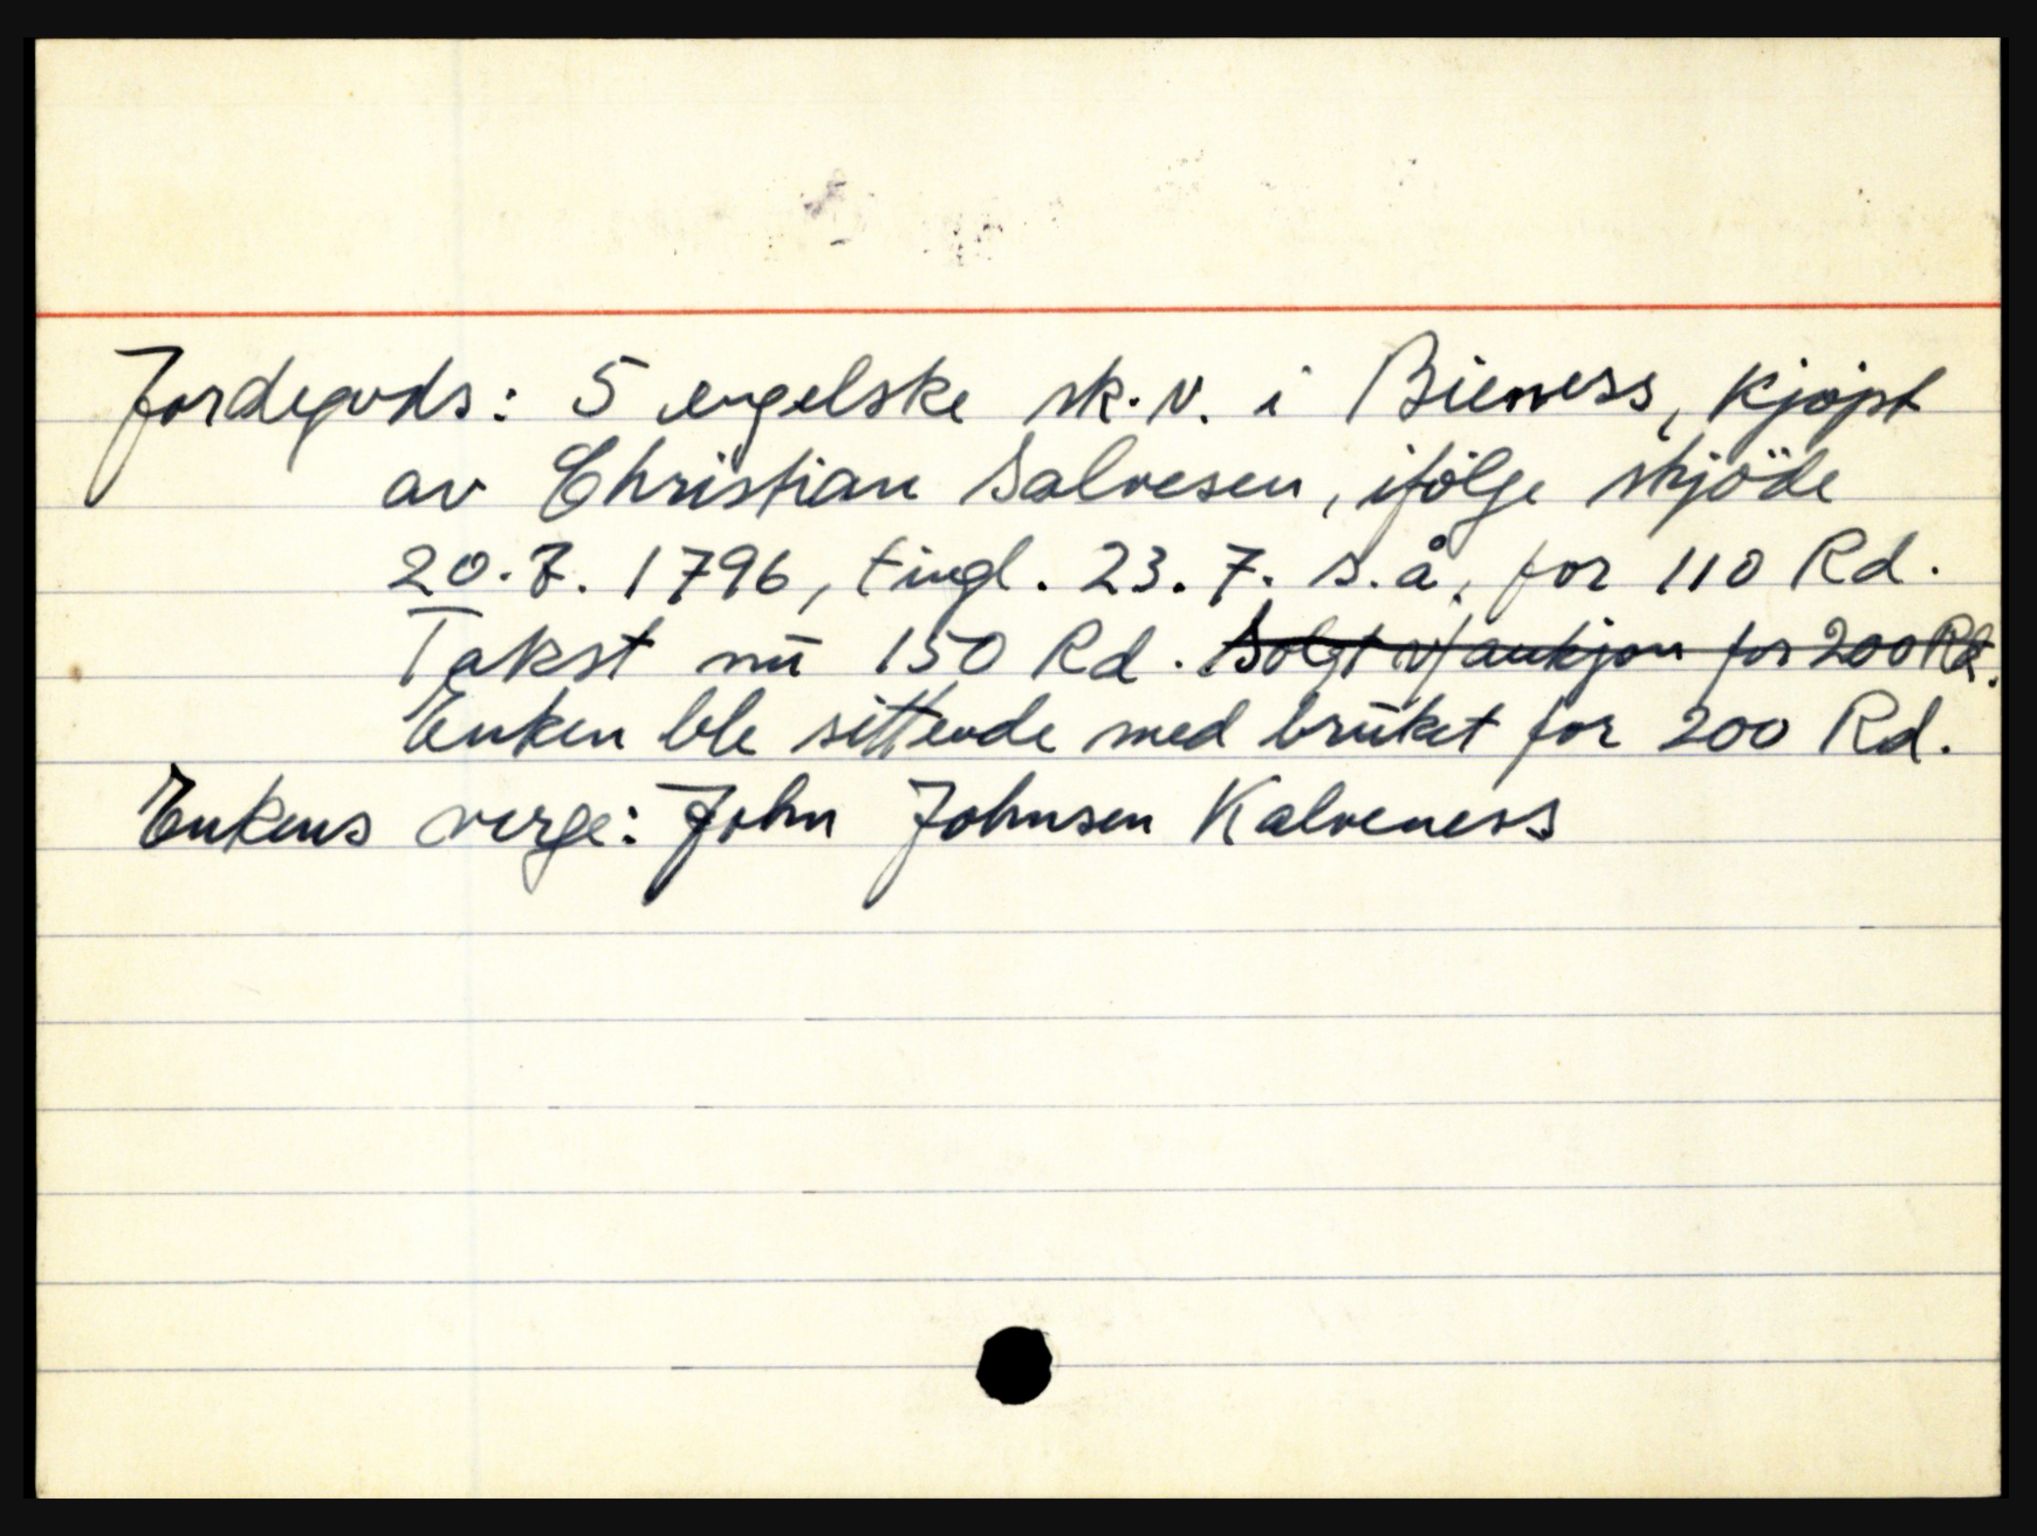 Jordegods: 5 engelske sk. v. i Bieness, kjøpt
av Christian Salvesen, ifölge skjöde
20.7. 1796, tingl. 23.7. s.å, for 110 Rd.
Takst nu 150 Rd. Solgt v/aukjon for 200 Rd.
Enken ble sittende med bruket for 200 Rd.
Enkens verge: John Johnsen Kalveness